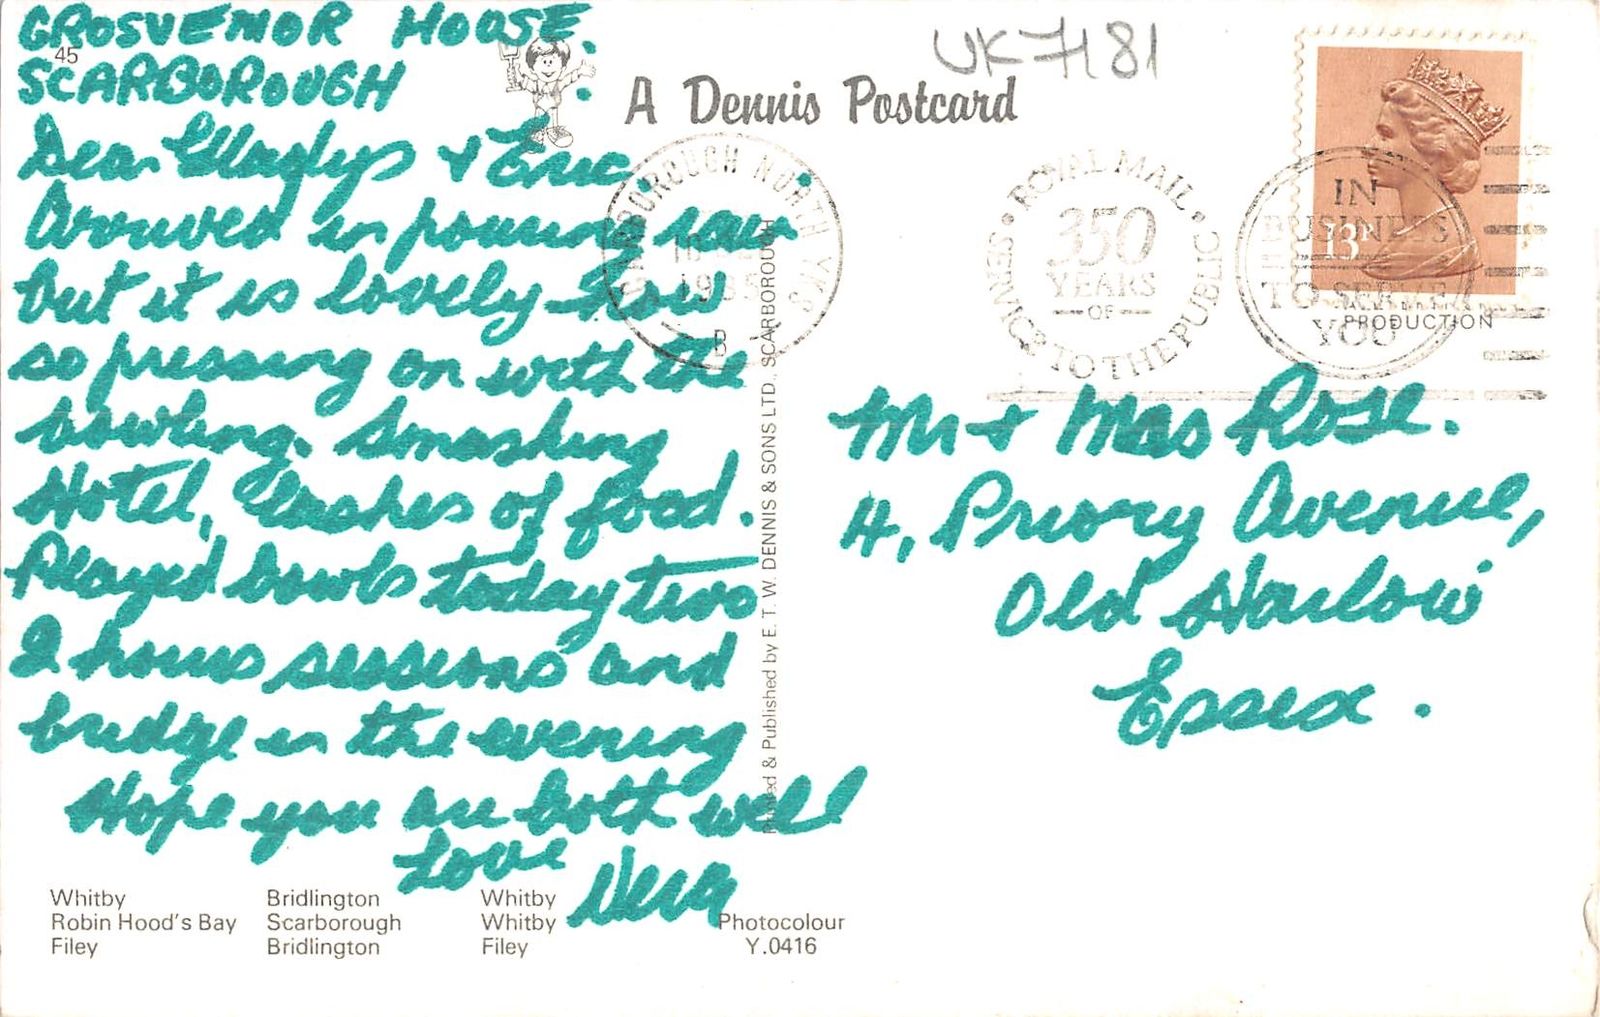 GROSVENOR HOUSE.
SCARBOROUGH
45
Dear Gladys & Eric
Arrived in pouring rain
but it is lovely now
so pressing on with the
bowling. Smashing
Hotel, lashes of food.
Played bowls today two
2 hours sessions and
bridge in the evening
Hope you are both well
Love
A Dennis Postcard
UK7181
SCARBOROUGH NORTH YKS
10
1985
B
ROYAL MAIL
350
YEARS
OF
SERVICE TO THE PUBLIC
IN
BUSINESS
TO SERVE
YOU
13P
PRODUCTION
Mr & Mrs Rose.
4, Priory Avenue,
Old Harlow
Essex.
Printed & Published by E. T. W. DENNIS & SONS LTD., SCARBOROUGH
Whitby Bridlington Whitby
Robin Hood's Bay Scarborough Whitby Photocolour
Filey Bridlington Filey Y.0416